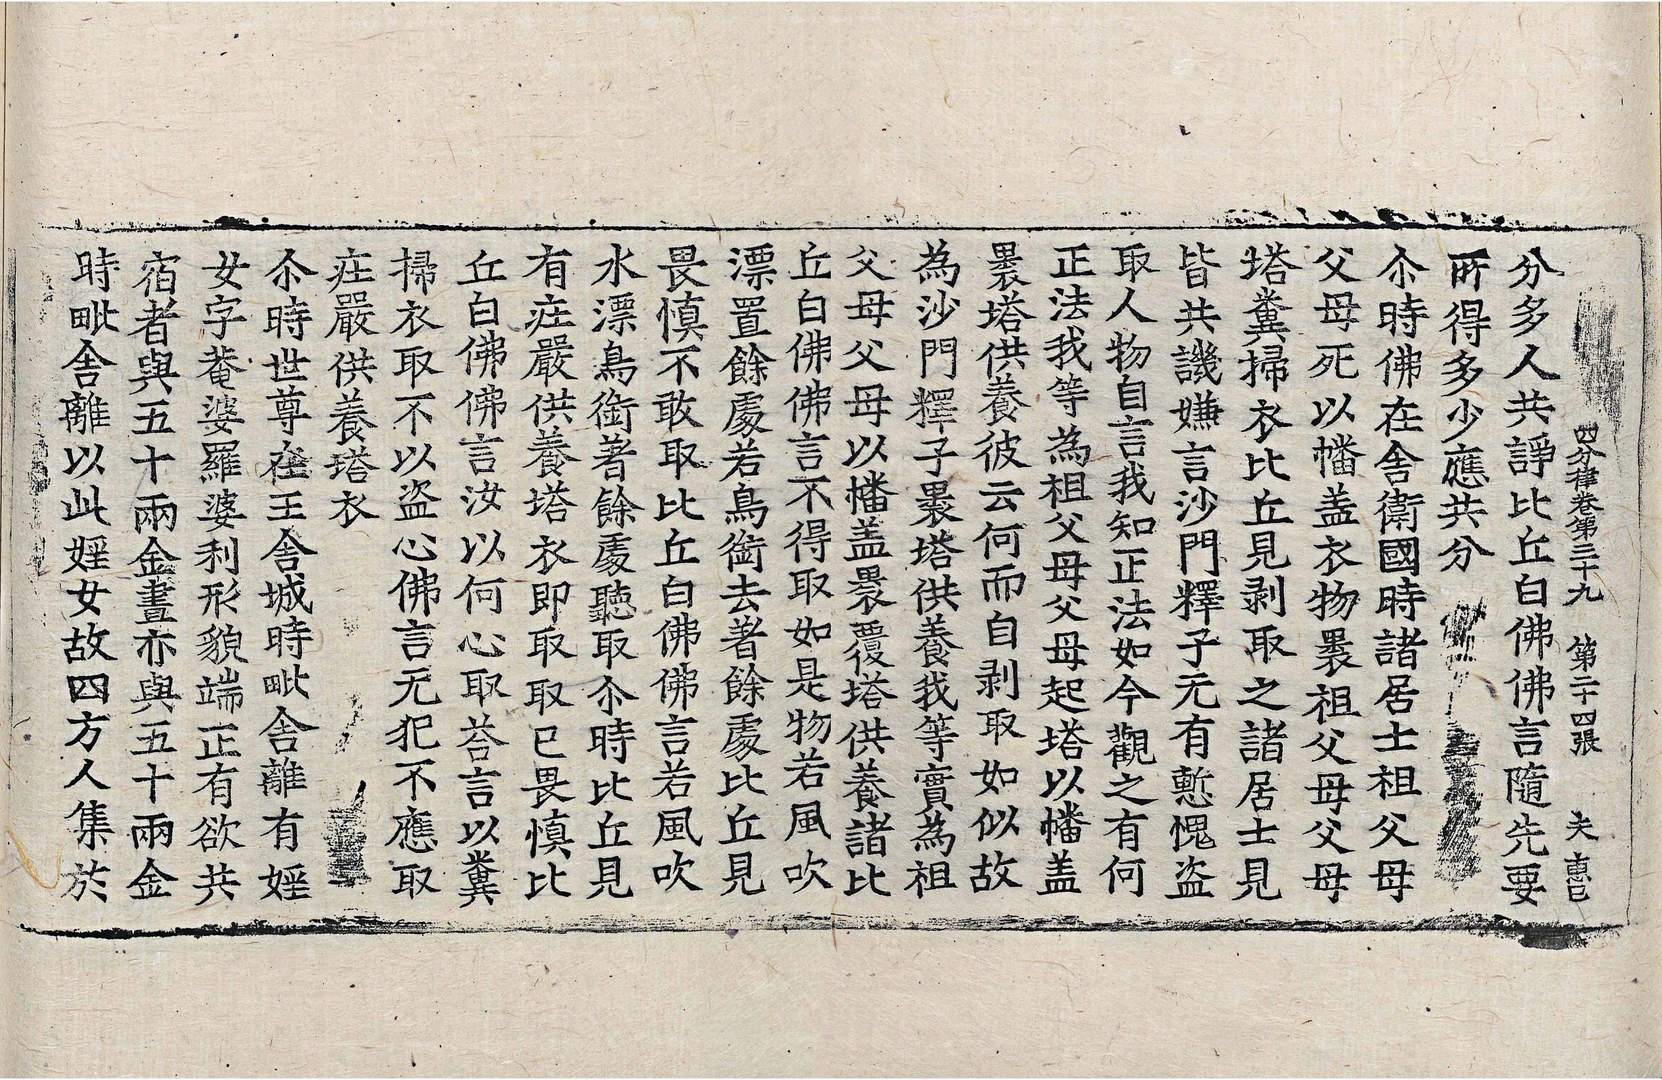 四分律卷第三十九 第二十四張 夫 惠日
分多人共諍比丘白佛佛言隨先要
所得多少應共分
尒時佛在舍衛國時諸居士祖父母
父母死以幡盖衣物褁祖父母父母
塔糞掃衣比丘見剥取之諸居士見
皆共譏嫌言沙門釋子无有慙愧盗
取人物自言我知正法如今觀之有何
正法我等為祖父母父母起塔以幡盖
褁塔供養彼云何而自剥取如似故
為沙門釋子褁塔供養我等實為祖
父母父母以幡盖褁覆塔供養諸比
丘白佛佛言不得取如是物若風吹
漂置餘處若鳥銜去著餘處比丘見
畏慎不敢取比丘白佛佛言若風吹
水漂鳥銜著餘處聽取尒時比丘見
有庄嚴供養塔衣即取取已畏慎比
丘白佛佛言汝以何心取荅言以糞
掃衣取不以盗心佛言无犯不應取
庄嚴供養塔衣
尒時世尊在王舍城時毗舍離有婬
女字菴婆羅婆利形貌端正有欲共
宿者與五十兩金晝亦與五十兩金
時毗舍離以此婬女故四方人集於